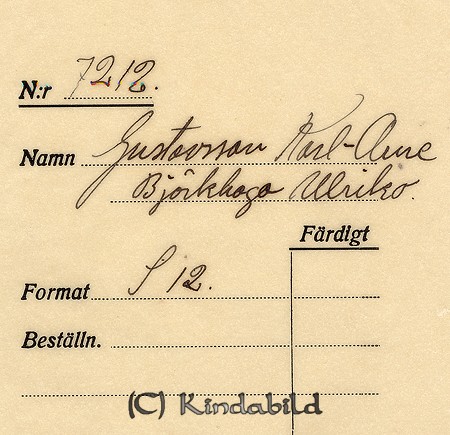 N:r 7212.
Namn Gustavsson Karl-Arne
Björkhaga Ulrika.
Färdigt
Format S 12.
Beställn.
(C) Kindabild